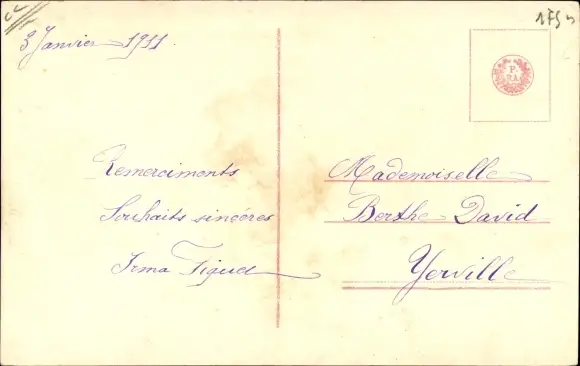 3 Janvier 1911
Remerciments
Souhaits sincères
Irma Figuel
Mademoiselle
Berthe David
Yerville
P.
RA.